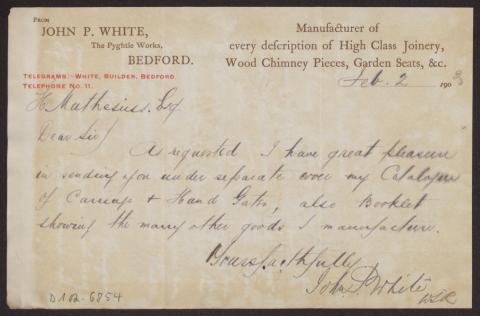 FROM
JOHN P. WHITE,
The Pyghtle Works,
BEDFORD.
TELEGRAMS:-WHITE, BUILDER, BEDFORD.
TELEPHONE No. 11.
Manufacturer of
every description of High Class Joinery,
Wood Chimney Pieces, Garden Seats, &c.
Feb. 2 190
H Mathesius. Esq
Dear Sir/
As requested I have great pleasure
in sending you under separate cover my Catalogue
of Carriage & Hand Gates, also Booklet
showing the many other goods I manufacture.
Yours faithfully
John P White
D102-6854